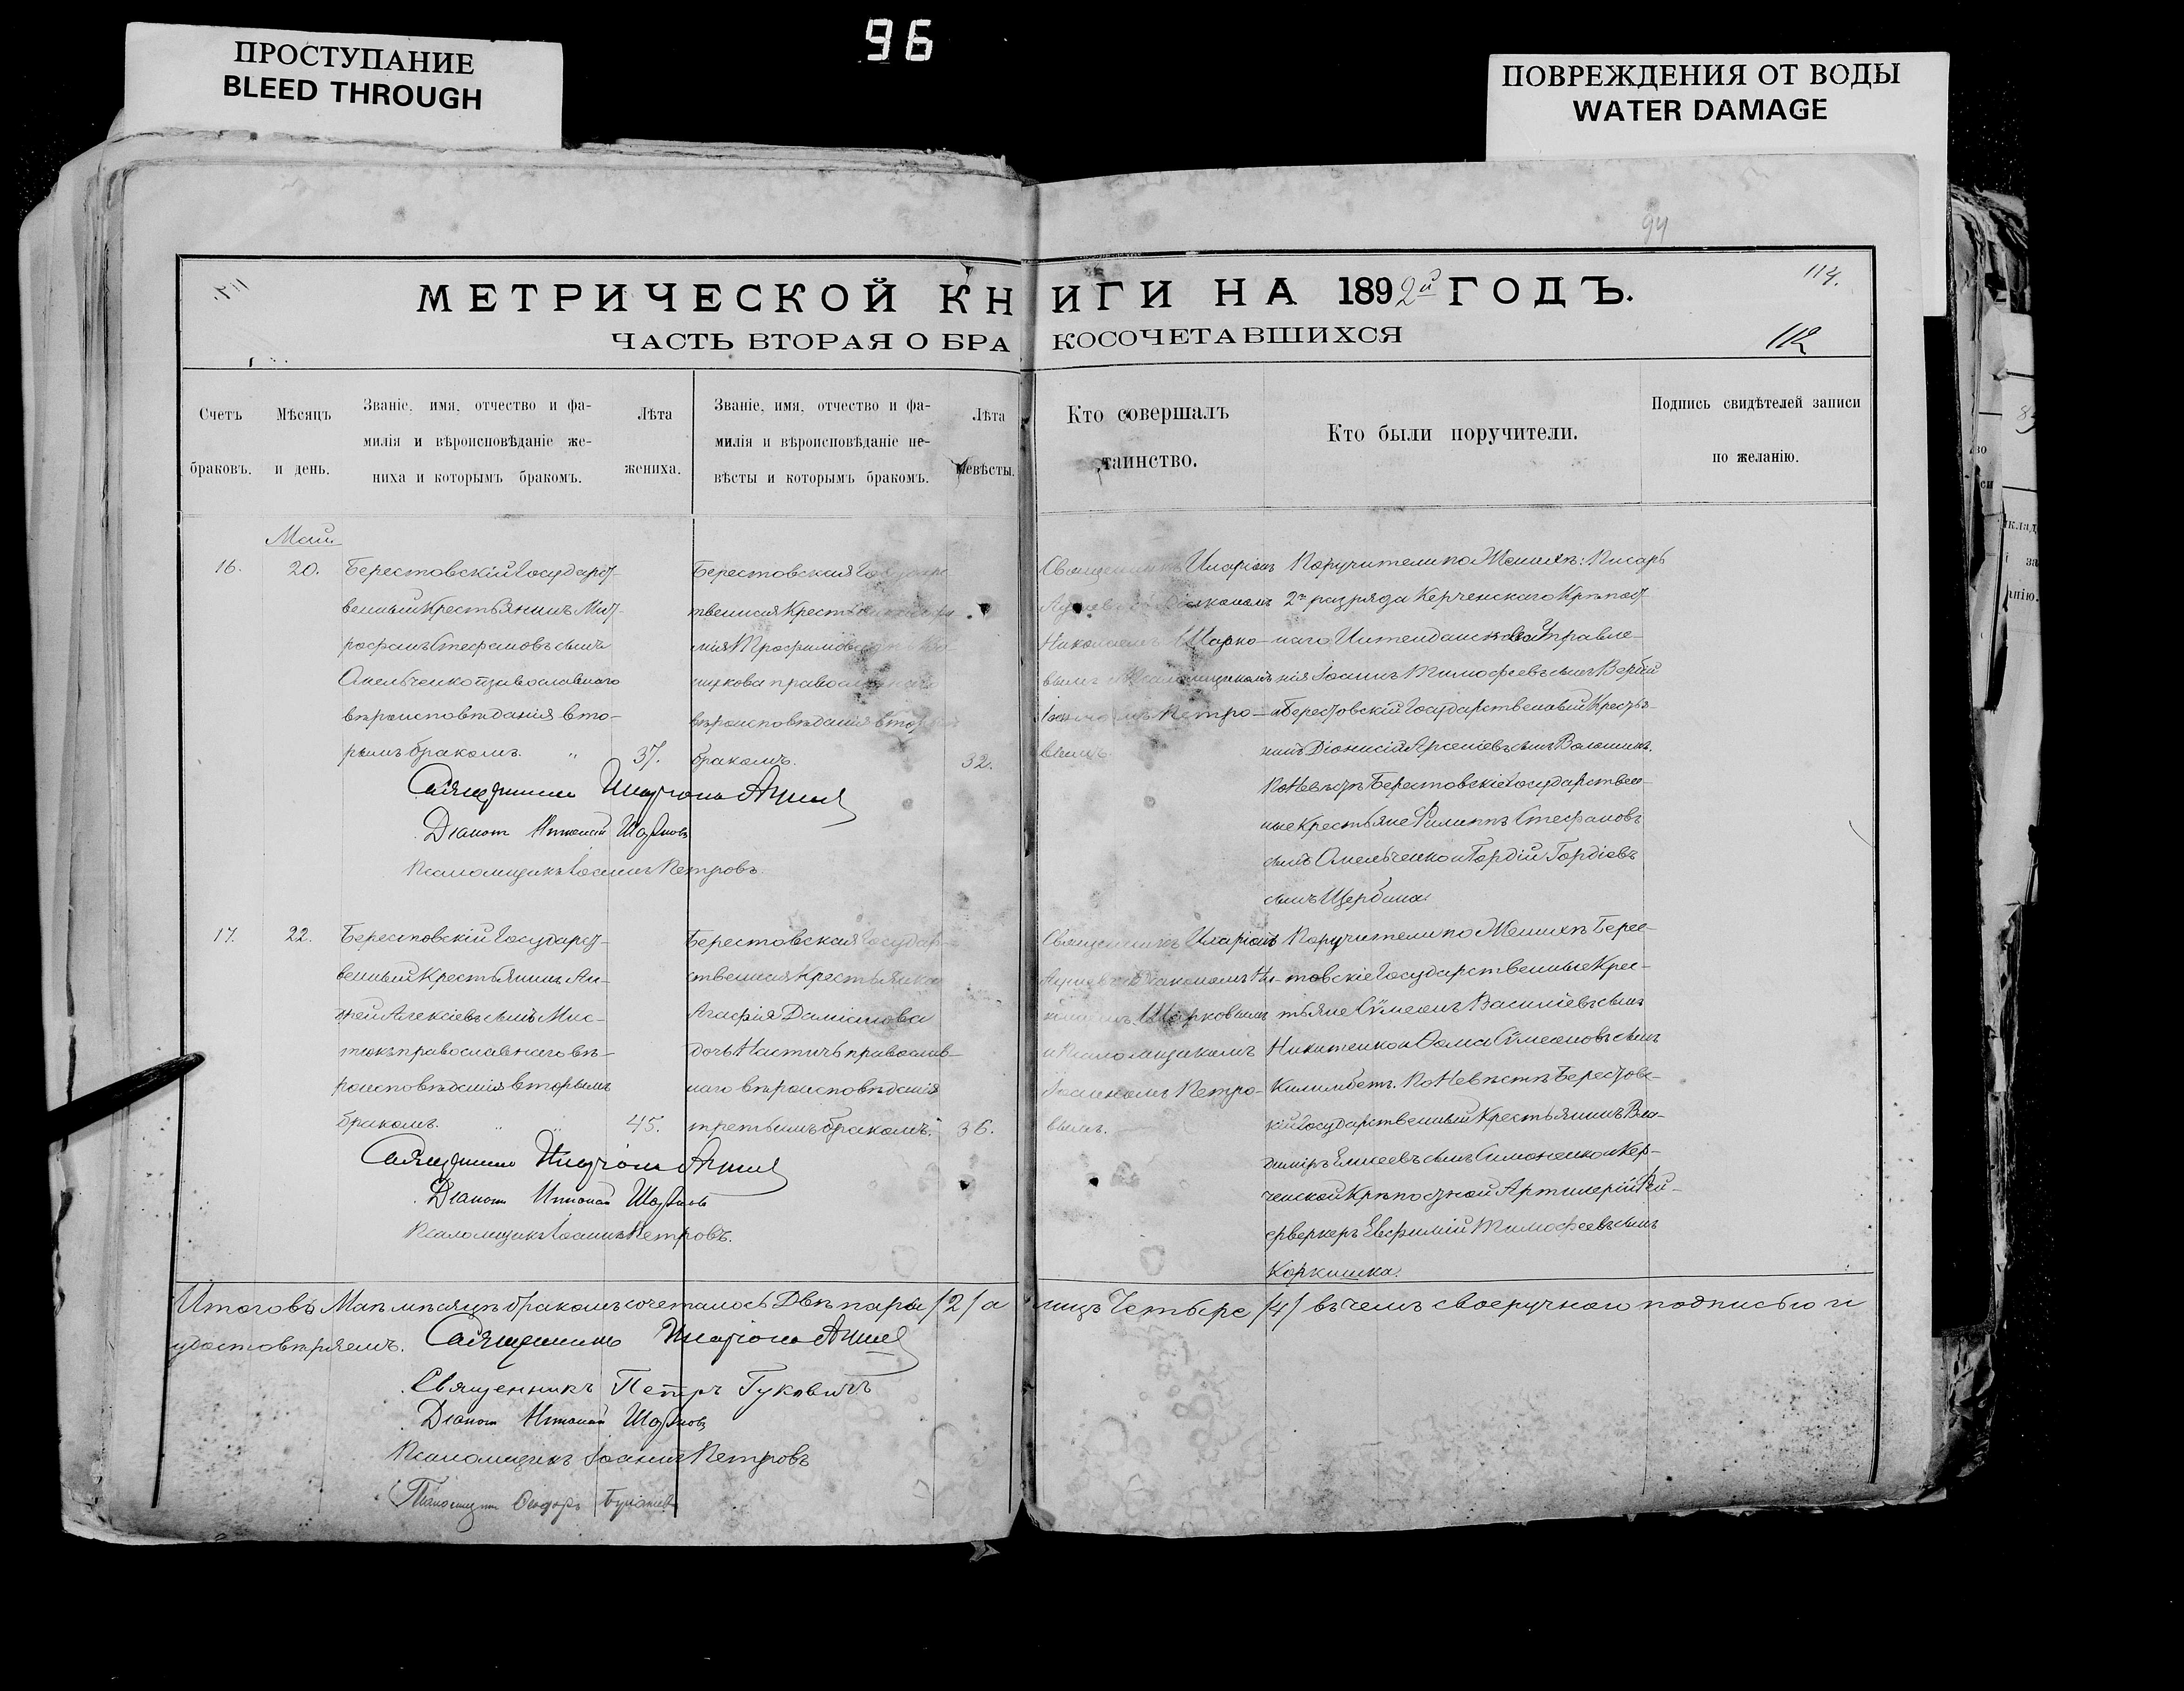 ПРОСТУПАНИЕ
BLEED THROUGH
96
ПОВРЕЖДЕНИЯ ОТ ВОДЫ
WATER DAMAGE
94
114.
МЕТРИЧЕСКОЙ КНИГИ НА 1892й ГОДЪ.
ЧАСТЬ ВТОРАЯ О БРАКОСОЧЕТАВШИХСЯ
112
Счетъ
браковъ.
Мѣсяцъ
и день.
Званіе, имя, отчество и фа-
милія и вѣроисповѣданіе же-
ниха и которымъ бракомъ.
Лѣта
жениха.
Званіе, имя, отчество и фа-
милія и вѣроисповѣданіе не-
вѣсты и которымъ бракомъ.
Лѣта
невѣсты.
Кто совершалъ
таинство.
Кто были поручители.
Подпись свидѣтелей записи
по желанію.
Май.
16.
20.
Берестовскій Государст-
венный Крестьянинъ Мит-
рофанъ Стефановъ сынъ
Омельченко православнаго
вѣроисповѣданія вто-
рымъ бракомъ.
37.
Берестовская Государс
твенная Крестьянка
Трофимова
православнаго
вѣроисповѣданія вторымъ
бракомъ.
32.
Священникъ Иларіонъ
Діакономъ
Николаемъ Шарко-
вымъ и Псаломщикомъ
Іоанномъ Петро-
вымъ.
Поручители по Женихѣ: Писарь
2го разряда Керченскаго Крѣпост-
наго Интендантскаго Управле-
нія Іоаннъ Тимофеевъ сынъ Вербій
и Берестовскій Государственный Крестья-
нинъ Діонисій Арсеніевъ сынъ Волошинъ.
По Невѣстѣ Берестовскіе Государствен-
ные Крестьяне Филиппъ Стефановъ
сынъ Омельченко и Гордій Гордіевъ
сынъ Щербина.
Священникъ Иларіонъ
Діаконъ Николай Шарковъ
Псаломщикъ Іоаннъ Петровъ.
17.
22.
Берестовскій Государст-
венный Крестьянинъ Ан-
дрей Алексіевъ сынъ Мис-
православнаго вѣ-
роисповѣданія вторымъ
бракомъ.
45.
Берестовская Государ-
ственная Крестьянка
Агафія Даміанова
дочь православ-
наго вѣроисповѣданія
третьимъ бракомъ.
36.
Священникъ Иларіонъ
Діакономъ Ни-
колаемъ Шарковымъ
и Псаломщикомъ
Іоанномъ Петро-
вымъ.
Поручители по Женихѣ Берес-
товскіе Государственные Крес-
тьяне Сѵмеонъ Василіевъ сынъ
Никитенко и Ѳома Сѵмеоновъ сынъ
Килимбетъ. По Невѣстѣ Берестовс-
кій Государственный Крестьянинъ Вла-
диміръ Елисеевъ сынъ Симоненко и Кер-
ченской Крѣпостной Артилеріи Фей-
ерверкеръ Евфимій Тимофеевъ сынъ
Коркишка.
Священникъ Иларіонъ
Діаконъ Николай Шарковъ
Псаломщикъ Іоаннъ Петровъ.
Итого въ Маѣ мѣсяцѣ бракомъ сочеталось Двѣ пары /2/ а лицъ Четыре /4/ въ чемъ своеручною подписью и
удостовѣряемъ. Священникъ Иларіонъ
Священникъ Петръ Гуковичъ
Діаконъ Николай Шарковъ
Псаломщикъ Іоаннъ Петровъ
Псаломщикъ Ѳеодоръ